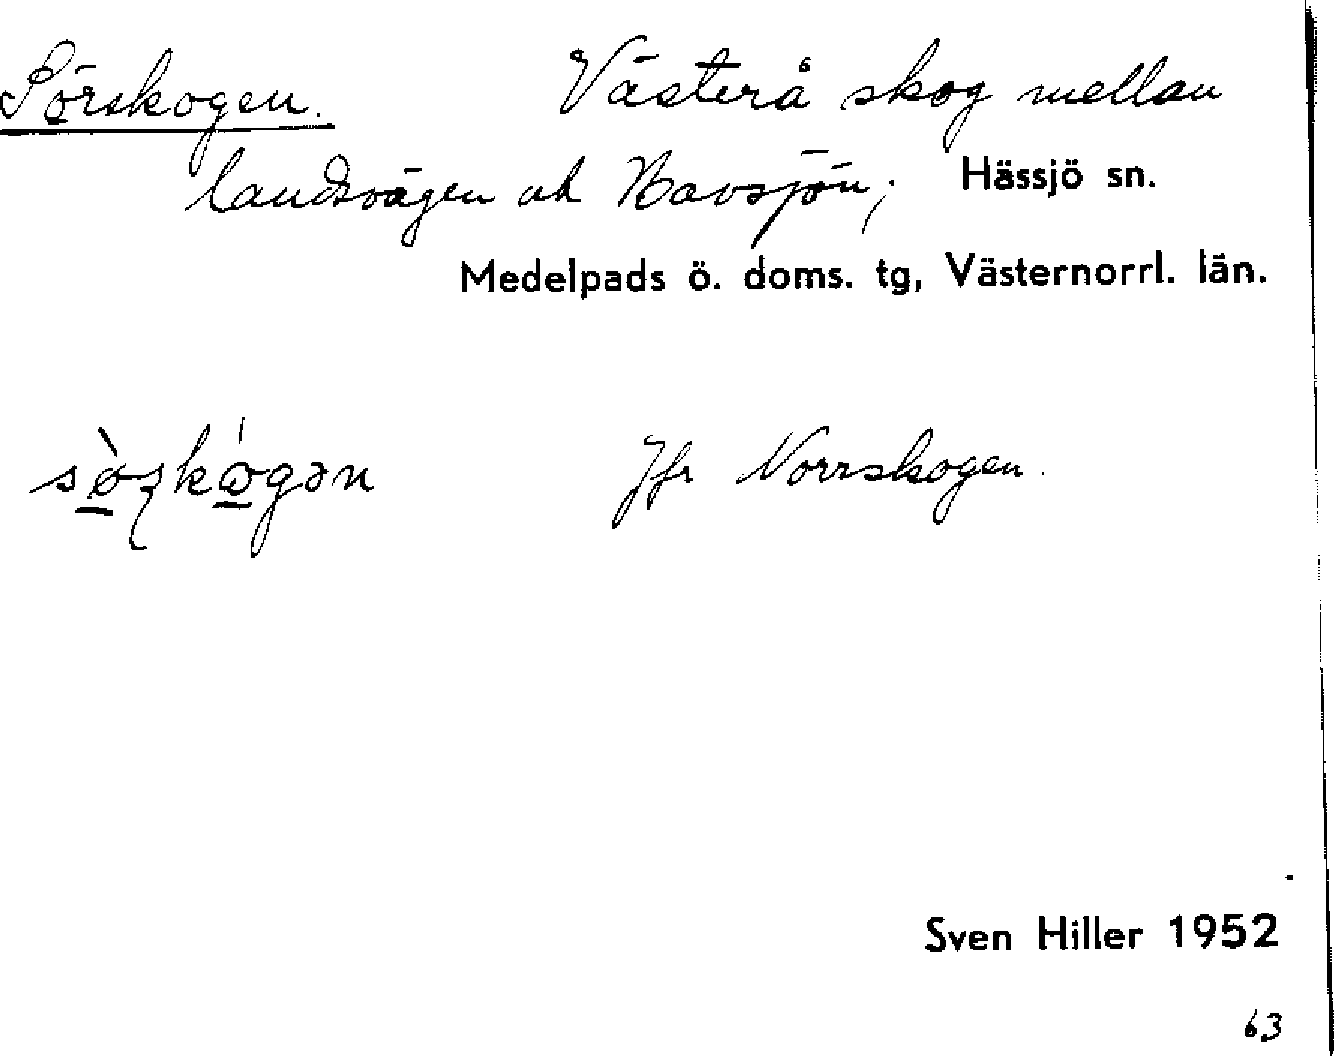 Sörskogen. Västerå skog mellan
landsvägen och Havsjön; Hässjö sn.
Medelpads ö. doms. tg, Västernorrl. län.
Jfr Norrskogen.
Sven Hiller 1952
63